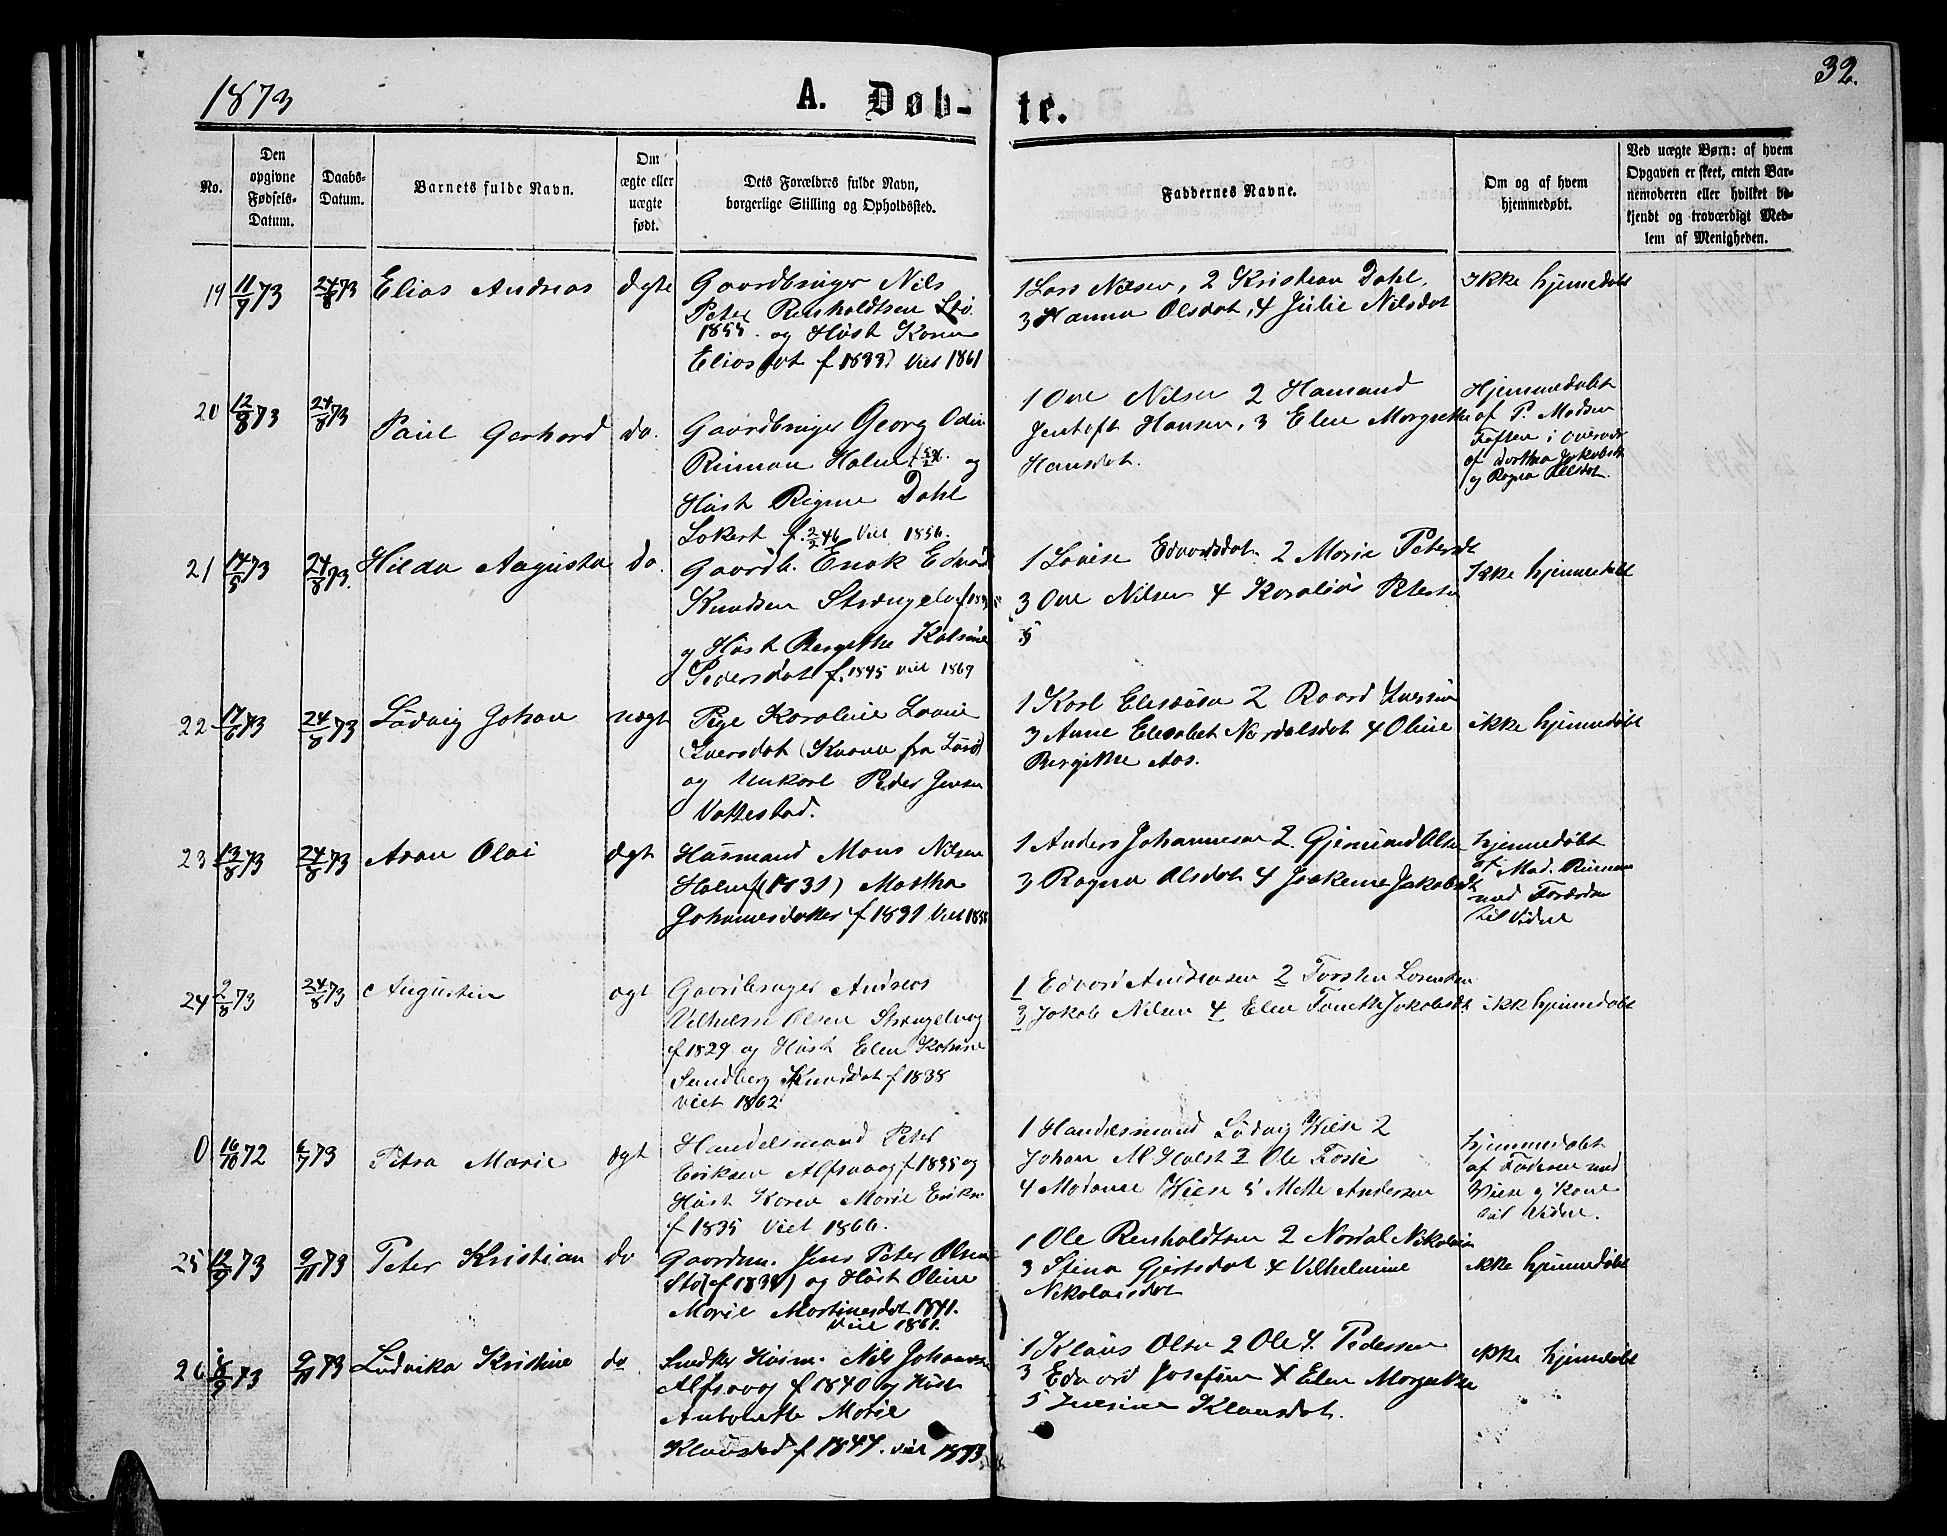 1873
A. Døb-
te.
32.
No.
Den opgivne Fødsels-Datum.
Daabs-Datum.
Barnets fulde Navn.
Om ægte eller uægte født.
Dets Forældres fulde Navn,
borgerlige Stilling og Opholdssted.
Faddernes Navne.
Om og af hvem
hjemmedøbt.
Ved uægte Børn: af hvem
Opgaven er skeet, enten Bar-
nemoderen eller hvilket be-
kjendt og troværdigt Med-
lem af Menigheden.
19 11/7 73 24/8 73 Elias Andreas ægte
Gaardbruger Nils
Peter Renholdtsen Stø
og Hust Karen
Eliasdot f 1833) Viet 1861
1 Lars Nilsen, 2 Kristian Dahl,
3 Hanna Olsdat, 4 Julie Nilsdat
Ikke hjemedøbt
20 12/8 73 24/8 73 Paul Gerhard do.
Gaardbruger Georg Odin
Holm og
Hust Dahl
f. 2/2 46 Viet 1856.
1 Ove Nilsen 2 Hamand
Jentoft Hansen, 3 Elen Margrethe
Hansdat.
Hjemmedøbt
af P. Madsen
i
af Dorthea Jakobsdt
og Ragna Olsdat.
21 14/5 73 24/8 73. Hilda Augusta do.
Gaardb. Enok Edvard
Knudsen
og Hust Bergithe
Pedersdat f. 1845 viet 1869
1 Lovise Edvardsdat. 2 Marie Petersdt
3 Ove Nilsen 4
5
Ikke hjemmedøbt
22 17/6 73 24/8 73 Ludvig Johan uægt
Pige Karoline
Iversdat (Kvæn fra
og Unkarl Peder Jensen
Vattestad.
1 Karl 2
3 Anne Elisabet 4 Oline
Bergithe Aas.
ikke hjemmedøbt
23 13/8 73 24/8 73 Aron Olai ægt
Husmand Mons Nilsen
Holm f (1831) Martha
Johannesdatter f 1831 Viet
1 Anders Johannesen 2. Gjermund Olsen
3 Ragna Olsdat 4 Jakobsdt
hjemmedøbt
af Mad.
med Forældre
til Vidne
24 2/8 73 24/8 73 Augustin ægt
Gaardbruger Andreas
Vilhelm Olsen Strengelvag
f 1829 og Hust Elen
Sundberg Knudsdat f 1838
viet 1862
1 Edvard Andersen 2 Torsten Lorentsen
3 Jakob Nilsen 4 Elen Jakobsdt
ikke hjemmedøbt
0 16/10 72 6/7 73 Petra Marie ægt
Handelsmand Peter
Eriksen Alfsvaag f 1835 og
Hust Karen Marie
f 1835 Viet 1866.
1 Handelsmand Ludvig Wiese 2
Johan M Holst 3 Ole
4 Madame Wiese 5 Mette Andersen
hjemmedøbt
af Faderen med
Wiese og Kone
til Vidne.
25 12/9 73 9/11 73 Peter Kristian do
Gaardm. Jens Peter Olsen
Stø (f 1834) og Hust Oline
Marie Martinesdat 1841.
Viet 1861.
1 Ole Renholdtsen 2 Nordal Nikolai
3 Stina Gjertsdat 4 Vilhelmine
Nikolaisdat
ikke hjemmedøbt
26 8/9 73 Ludvika Kristine do
Snedker Husm. Nils Johansen
Alfsvaag f 1840 og Hust
Antonette Marie
Klausdat f 1847. viet 1873
1 Klaus Olsen 2 Ole P. Pedersen
3 Edvard Josefsen 4 Elen Margrethe
5 Klausdat.
ikke hjemmedøbt